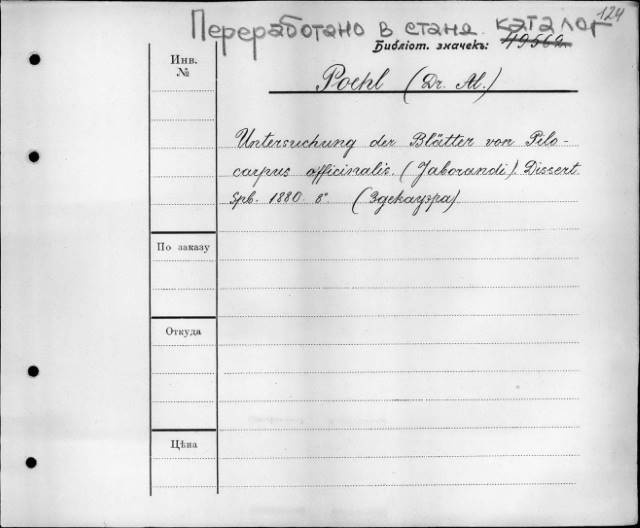 124
Переработано в станд. каталог
Библіот. значекъ: 49562.
Инв.
№
Poehl (Dr. Al.)
Untersuchung der Blätter von Pilo-
carpus officinalis. (Jaborandi). Dissert.
Spb. 1880. 8°. (Эдекауэра)
По заказу
Откуда
Цѣна